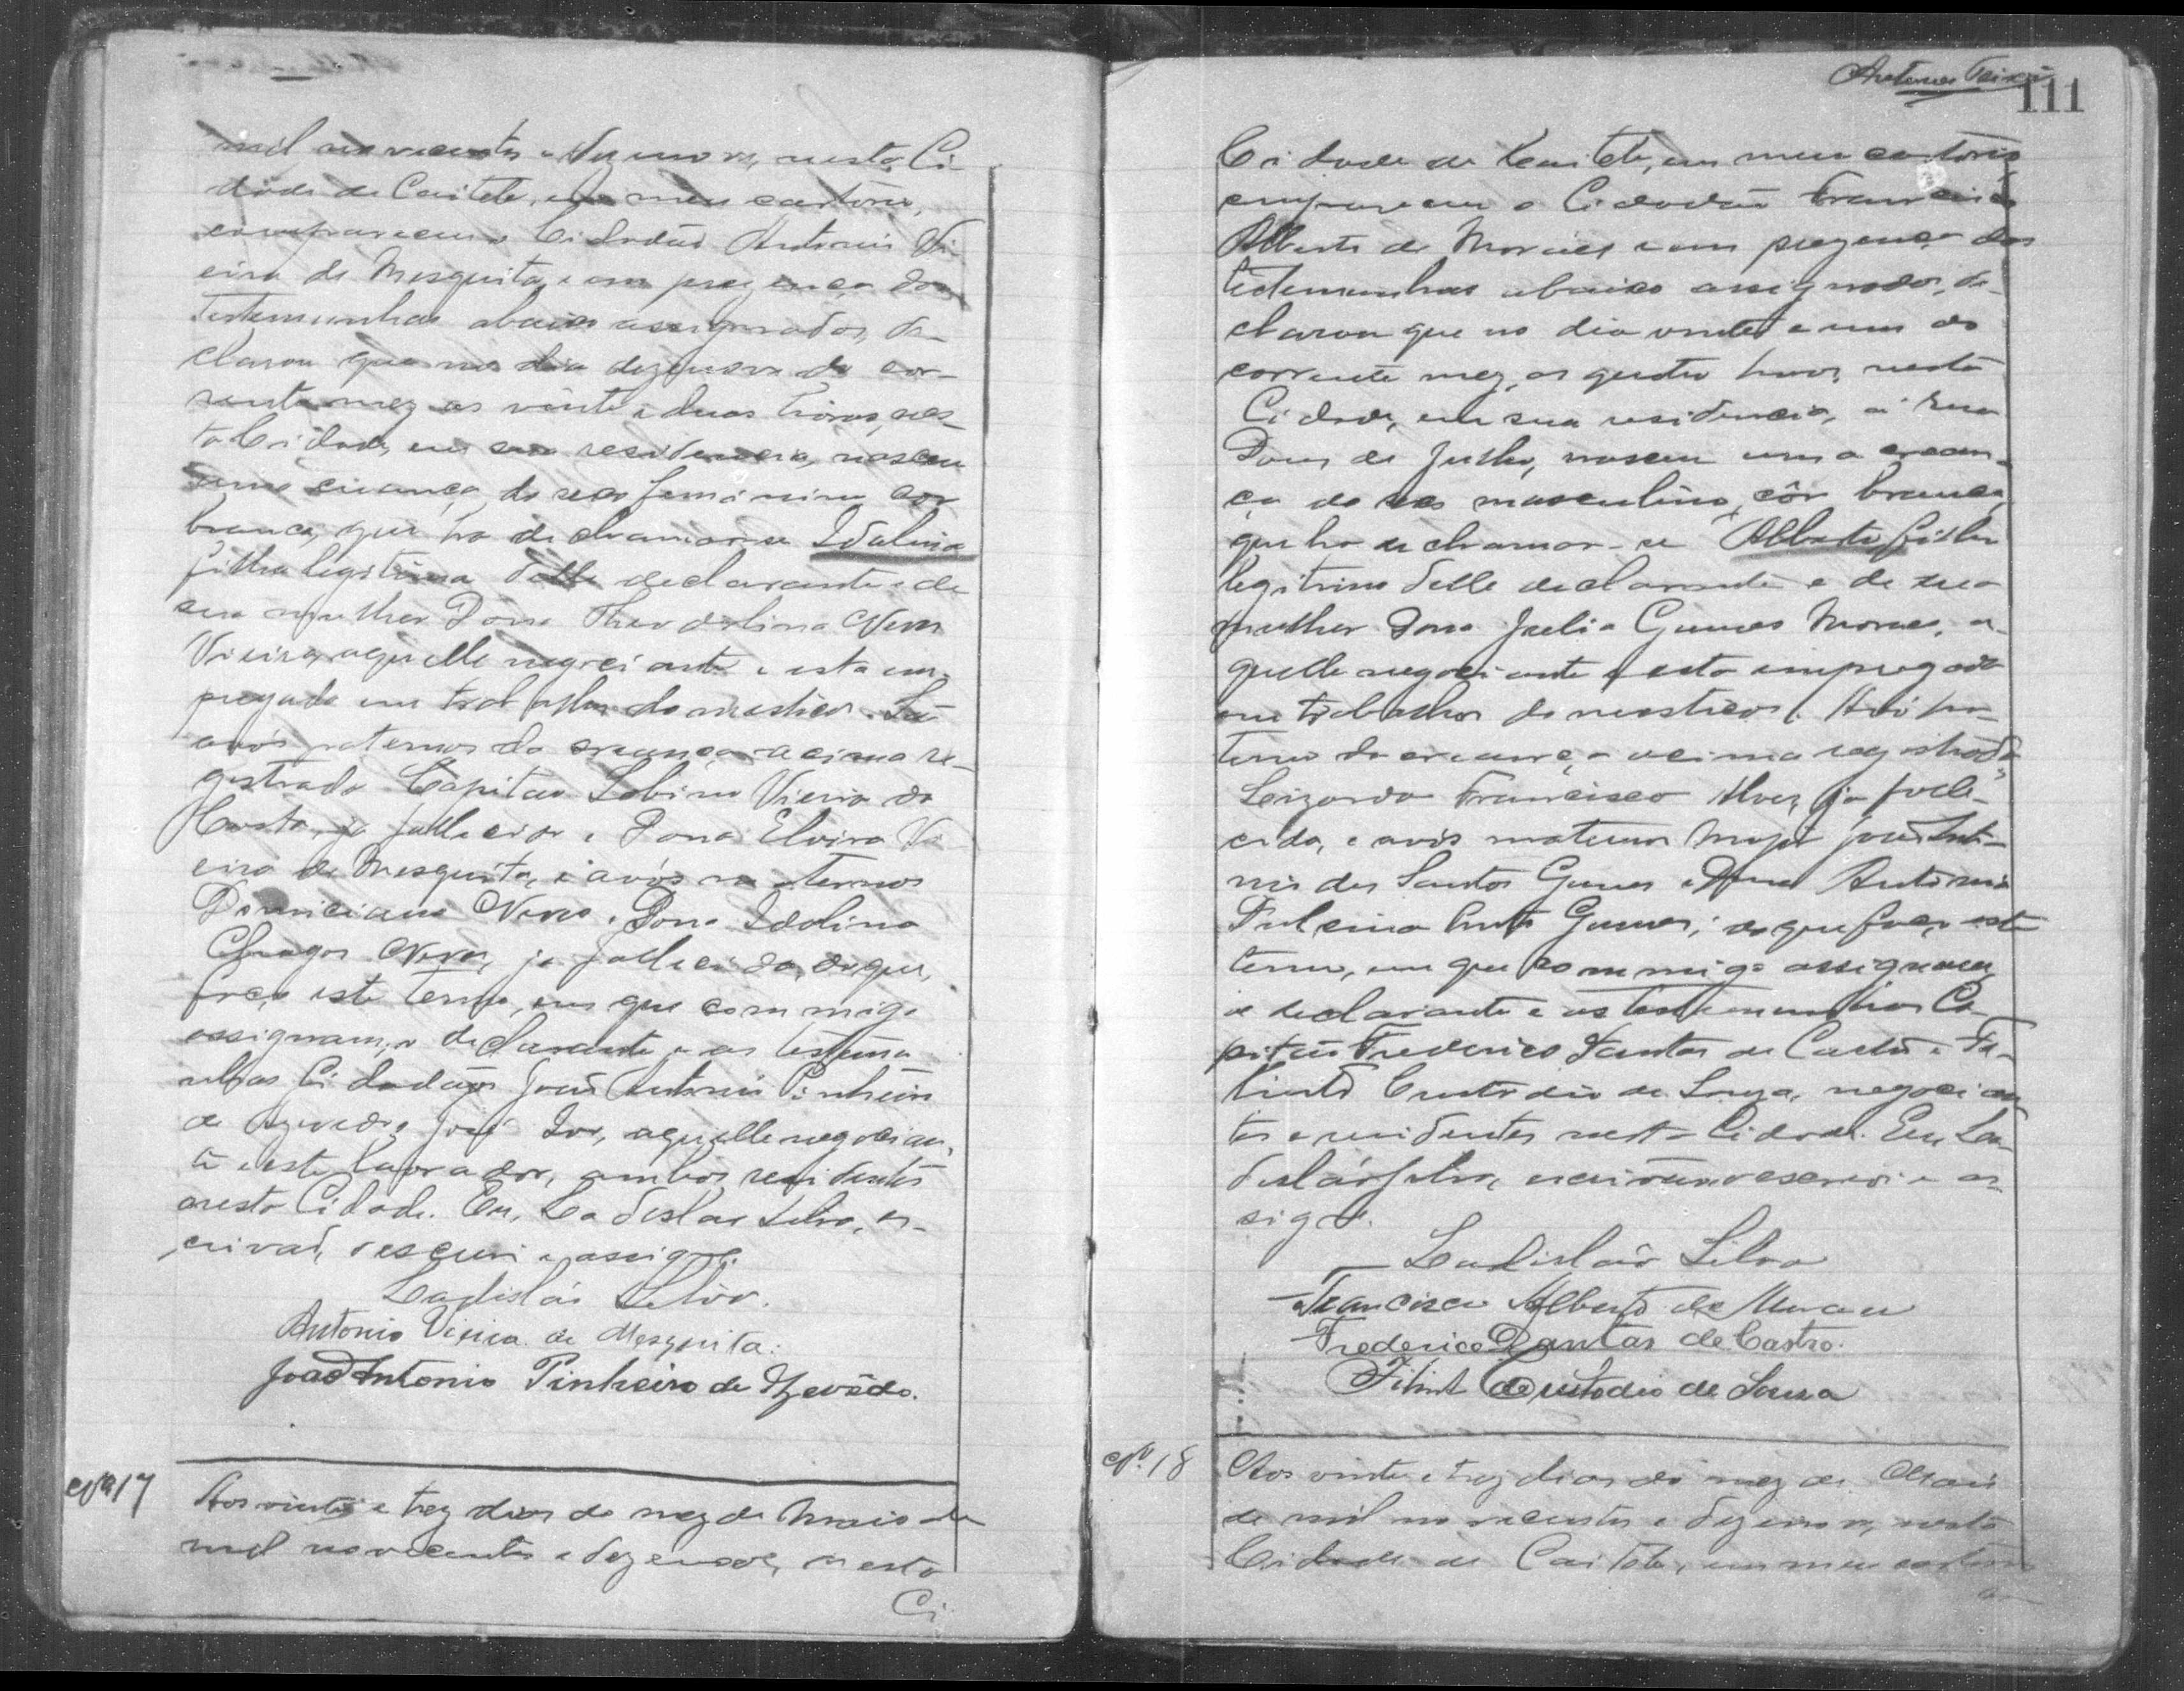 mil novecentos e dezenove, nesta Ci-
dade de Caiteté, em meu cartorio,
compareceu o Cidadão Antonio Vi-
eira de Mesquita, e em prezença das
testemunhas abaixo assignadas, de-
clarou que no dia dezenove do cor-
rente mez as vinte e duas horas, nes-
ta Cidade, em sua residencia, nasceu
uma creança do sexo feminino, cor
branca, que ha de chamar-se Idalina
filha legitima delle declarante e de
sua mulher Dona Theodolina Neves
Vieira, aquelle negociante e esta em-
pregada em trabalhos domesticos. São
avós paternos da creança acima re-
gistrada Capitão Sabino Vieira da
Costa, ja fallecido e Dona Elvira Vi
eira de Mesquita, e avós maternos
Domiciano Neves e Dona Idalina
Chagas Neves, ja fallecida, do que,
faço este termo, em que commigo
assignam, o declarante e as testemu
nhas Cidadãos João Antonio Pinheiro
de Azevedo e José Ivo, aquelle negocian-
te e este lavrador, ambos residentes
nesta Cidade. Eu, Ladislao Silva, es-
crivão, o escrevi e assigno.
Ladisláo Silva.
Antonio Vieira de Mesquita.
João Antonio Pinheiro de Azevêdo.
Nº 17
Aos vinte e trez dias do mez de Maio de
mil novecentos e dezenove, nesta
Ci
111
Cidade de Caiteté, em meu cartorio,
compareceu o Cidadão Francisco
Alberto de Moraes e em prezença das
testemunhas abaixo assignadas, de-
clarou que no dia vinte e um do
corrente mez, as quatro horas, nesta
Cidade, em sua residencia, á rua
Dous de Julho, nasceu uma crean-
ça do sexo masculino, côr branca,
que ha de chamar-se Alberto, filho
legitimo delle declarante e de sua
mulher Dona Julia Gumes Moraes, a-
quelle negociante e esta empregada
em trabalhos domesticos. Avó pa-
terno da creança acima registrada
Lizardo Francisco Alves, ja falle-
cido, e avós maternos Major João Anto-
nio dos Santos Gumes e Dona Antonia
Gumes; do que faço este
termo, em que commigo assignam,
o declarante e as testemunhas Ca-
pitão Frederico Dantas de Castro e Fi-
linto Custodio de Souza, negocian
tes e residentes nesta Cidade. Eu, La-
disláo Silva, escrivão, o escrevi e as-
signo.
Ladisláo Silva
Francisco Alberto de Moraes
Frederico Dantas de Castro.
Filinto Custodio de Souza
Nº 18
Aos vinte e trez dias do mez de Maio
de mil novecentos e dezenove, nesta
Cidade de Caiteté, em meu cartorio